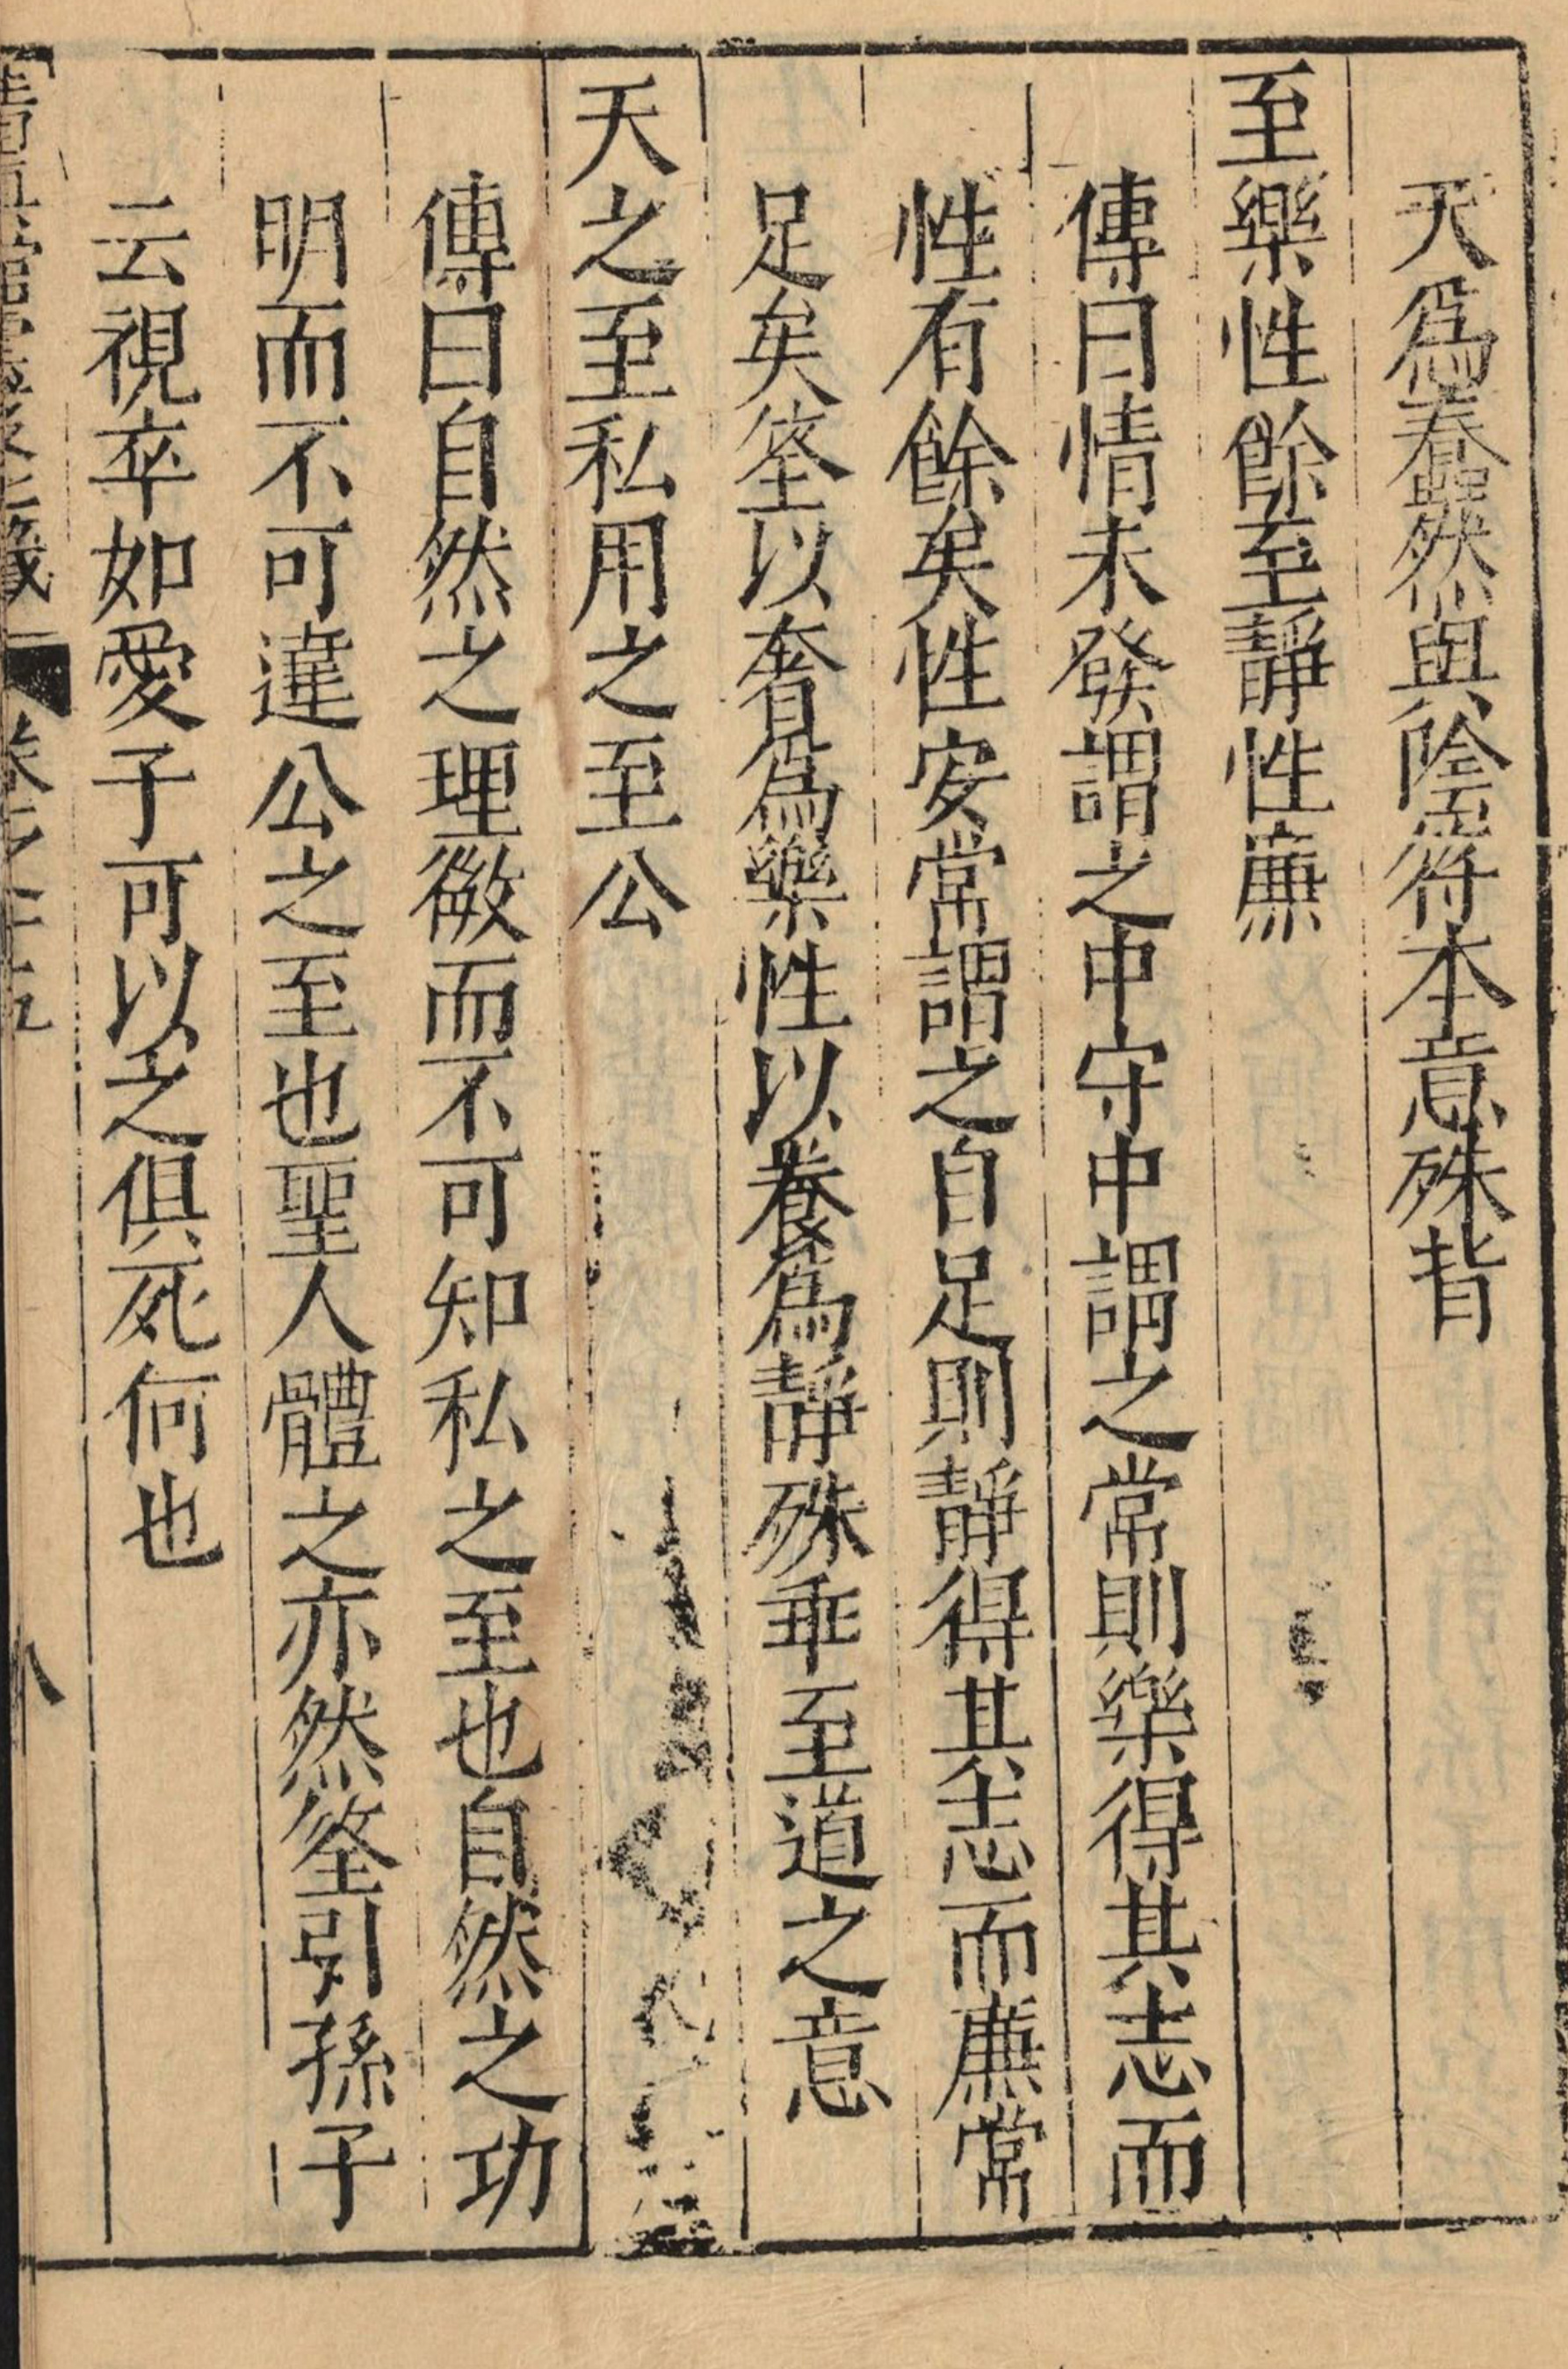 天爲蠢然與陰符本意殊背
至樂性餘至靜性廉
傳曰情未發謂之中守中謂之常則樂得其志而
性有餘矣性安常謂之自足則靜得其志而廉常
足矣筌以奢爲樂性以養爲靜殊乖至道之意
天之至私用之至公
傳曰自然之理微而不可知私之至也自然之功
明而不可違公之至也聖人體之亦然筌引孫子
云視卒如愛子可以之俱死何也
卷之十五
八